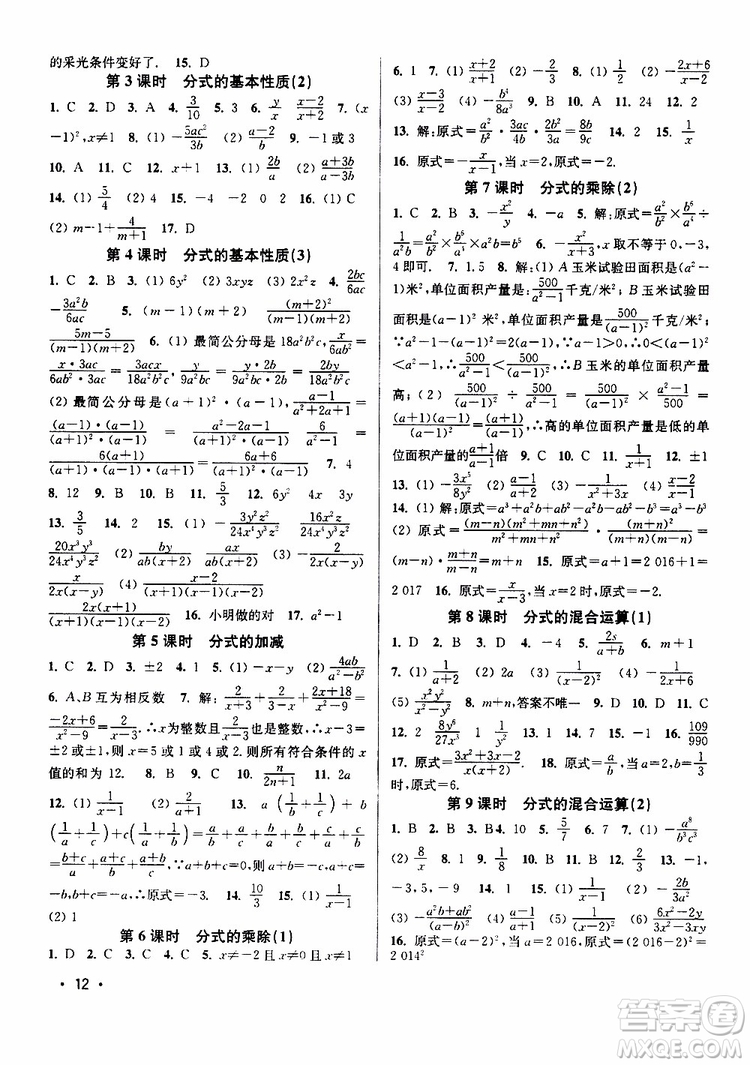 的采光条件变好了. 15. D
第 3 课时 分式的基本性质(2)
1. C 2. D 3. A 4. 3/10 5. 3 6. y/x (x-2)/x 7. (x
-1)², x≠1 8. (1) -5ac²/3b (2) (a-2)/b 9. -1 或 3
10. A 11. A 12. x+1 13. (1) 2b/a (2) (a+3b)/(a-2b)
14. (1) 5/4 (2) 4 15. -4 -2 0 2 16. (1) C
(2) m-1+4/(m+1) 17. D
第 4 课时 分式的基本性质(3)
1. C 2. B 3. (1) 6y² (2) 3xyz (3) 2x²z 4. 2bc/6ac
-3a²b/6ac 5. (m-1)(m+2)/((m+2)(m-2))
(5m-5)/((m-1)(m+2)) 6. (1) 最简公分母是 18a²b²c,
x·3ac/(6ab²·3ac)=3acx/18a²b²c, y/9a²bc=y·2b/(9a²bc·2b)=2by/18a²b²c
(2) 最简公分母是(a+1)²·(a-1), (a-1)/(a²+2a+1)=
(a-1)·(a-1)/((a+1)²·(a-1))=(a²-2a-1)/((a+1)²(a-1)), 6/(a²-1)=
6(a+1)/((a+1)(a-1)(a+1))=(6a+6)/((a+1)²(a-1)) 7. 4
8. 12 9. B 10. C 11. 5/3 12. 6x² 4x 3y
13. 3/5 14. 2 15. (1) -3y²z²/24x⁴y³z² 16x²z²/24x⁴y³z²
20x³y³/24x⁴y³z² (2) by/(ab(x+2)) ax/(ab(x+2)) (3) -(x-1)²/(2x(x-1))
x/(2x(x-1)) (4) (x-2)/((x+1)(x-1)(x-2))
2x(x+1)/((x+1)(x-1)(x-2)) 16. 小明做的对 17. a²-1
第 5 课时 分式的加减
1. C 2. B 3. ±2 4. B 5. (1) -x-y (2) 4ab/(a²-b²)
6. A、B 互为相反数 7. 解: 2/(x+3)+2/(3-x)+(2x+18)/(x²-9)=
(-2x+6)/(x²-9)=2/(x-3), ∴x 为整数且 2/(x-3)也是整数, ∴x-3=
±2 或±1, ∴x=5 或 1 或 4 或 2, 则所有符合条件的 x
值的和为 12. 8. D 9. C 10. n/(2n+1) 11. 2a
12. (1) -1/(a+1) (2) 2/(x-1) 13. a(1/b+1/c)+b
(1/a+1/c)+c(1/a+1/b)=a/b+a/c+b/a+b/c+c/a+c/b
=(b+c)/a+(a+c)/b+(a+b)/c, ∵a+b+c=0, ∴a+c=
-b, b+c=-a, a+b=-c, ∴原式=-3. 14. 10/3 15. (1) 1/(x-1)
(2) 1
第 6 课时 分式的乘除(1)
1. D 2. D 3. C 4. C 5. x≠-2 且 x≠-3 且 x≠-4
6. 1 7. (1) (x+2)/(x+1) (2) x/(x-1) 8. (1) -2 (2) -(2x+6)/(x-2)
(3) (x-3)/(x-2) (4) -b⁴/a³ 9. C 10. C 11. 24 12. 2
13. 解: 原式=a²/b²·4a/9c·2b³/a³=8b/9c 14. 6 15. 1/x
16. 原式=-x/(x-1), 当 x=2 时, 原式=-2
第 7 课时 分式的乘除(2)
1. C 2. B 3. -x³/y 4. -a 5. 解: 原式=a²/b²×b⁶/a³÷
1/a²b=a²/b²×b⁶/a³×a²b=ab⁵ 6. -x²/(x-3), 当 x=3、-3、
4 即可. 7. 1.5 8. 解: (1) A 玉米试验田面积是(a²-
1) 米², 单位面积产量是 500/(a²-1)千克/米²; B 玉米试验田
面积是(a-1)² 米², 单位面积产量是500/(a-1)²千克/米²;
∵a²-1-(a-1)²=2(a-1), ∵a-1>0, ∴0<(a-1)²
<a²-1, ∴500/(a²-1)<500/(a-1)², ∴B 玉米的单位面积产量
高; (2) 500/(a-1)²÷500/(a²-1)=500/(a-1)²×(a²-1)/500=
(a+1)(a-1)/(a-1)²=(a+1)/(a-1), ∴高的单位面积产量是低的单位
面积产量的(a+1)/(a-1)倍 9. C 10. C 11. 1/(x+1) 12. A
13. (1) -3x⁵/8y² (2) (a-1)/(a+1) (3) -1/(x²+3x)
14. (1) 解: 原式=a³+a²b+ab²-a²b-ab²-b³=a³-b³
(2) 原式=(m-n)(m²+mn+n²)/(m²+mn+n²)·(m+n)/(m-n)²=
(m-n)·(m+n)/(m-n)=m+n 15. 原式=x+1=2 016+1=
2 017 16. 原式=x/(x-3), 当 x=2 时, 原式=-2.
第 8 课时 分式的混合运算(1)
1. D 2. C 3. D 4. -4 5. 2s/(a+b) 6. m+1
7. (1) 1/(a+2) (2) 2a (3) 1/(x-2)² (4) -(x+1)/(x-1)
(5) x²y²/(x²-y²) 8. =m, 答案不唯一 9. D 10. D 11. C
12. 2 13. 8y⁶/27x³ 1 1/y² 14. 1 15. 7 16. 109/990
17. 原式=(3x²+3x-2)/(x(x+2)) 18. 原式=(x-1)/(x-2), 当 x=
0 时, 原式=6.
第 9 课时 分式的混合运算(2)
1. B 2. D 3. B4. B 5. 5/7 6. 5 7. (1) -a⁴/b³c³
(2) 8/x 8. 1 9. B 10. B 11. -4/3 12. -1 13. x=
-3, 5, 9 14. 1 15. (1) 1/(x-1) (2) -2b/a²
(3) -(a²b+ab²)/(a-b)² (4) (a-1)/(a+2) (5) 1 (6) (6x²-2x)/(x-2)
16. 原式=(x-2)²=(2 016-2)² 原式=(2 016-2)²=
2 014²
· 12 ·
答案圈
MXQE.COM